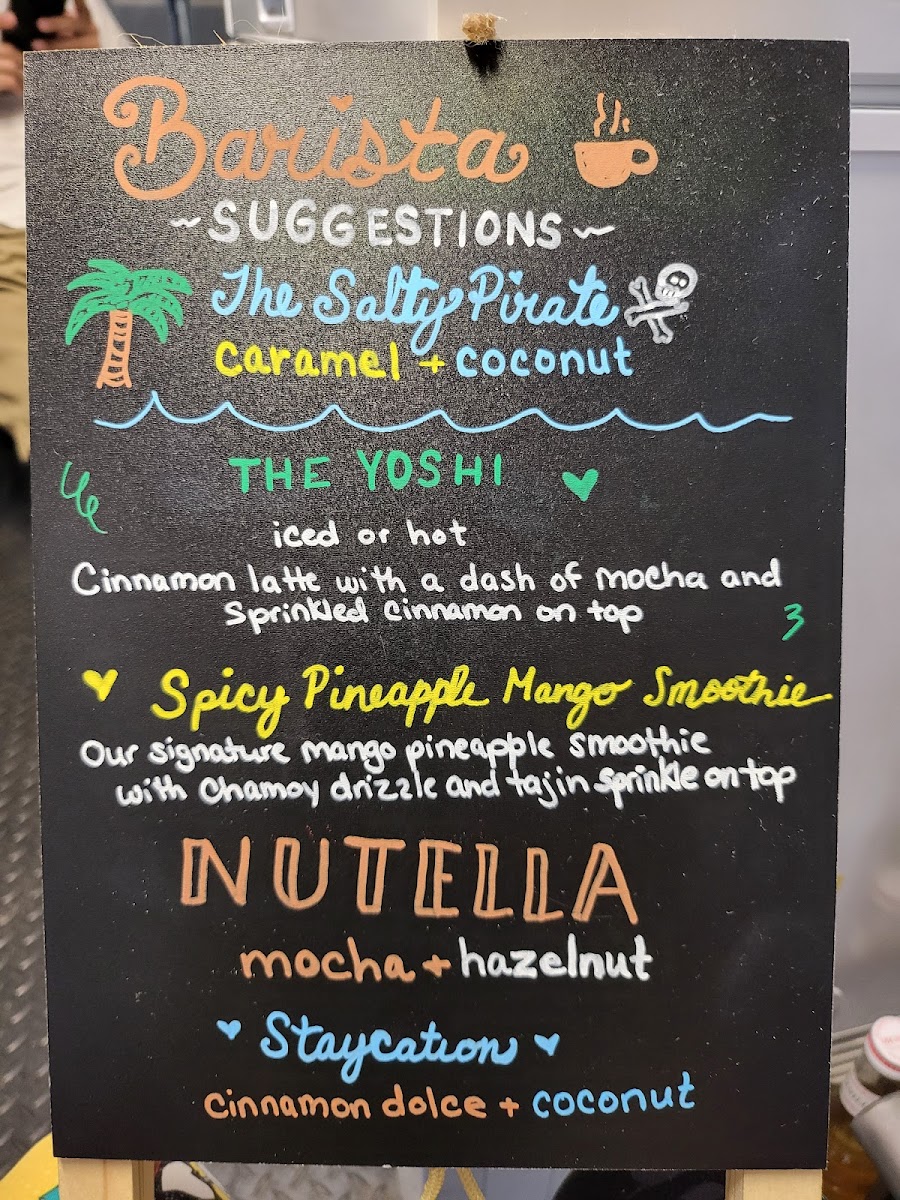 Barista
~SUGGESTIONS~
The Salty Pirate
caramel + coconut
THE YOSHI
iced or hot
Cinnamon latte with a dash of mocha and
Sprinkled cinnamon on top
Spicy Pineapple Mango Smoothie
Our signature mango pineapple smoothie
with Chamoy drizzle and tajin sprinkle on top
NUTELLA
mocha + hazelnut
Staycation
cinnamon dolce + coconut